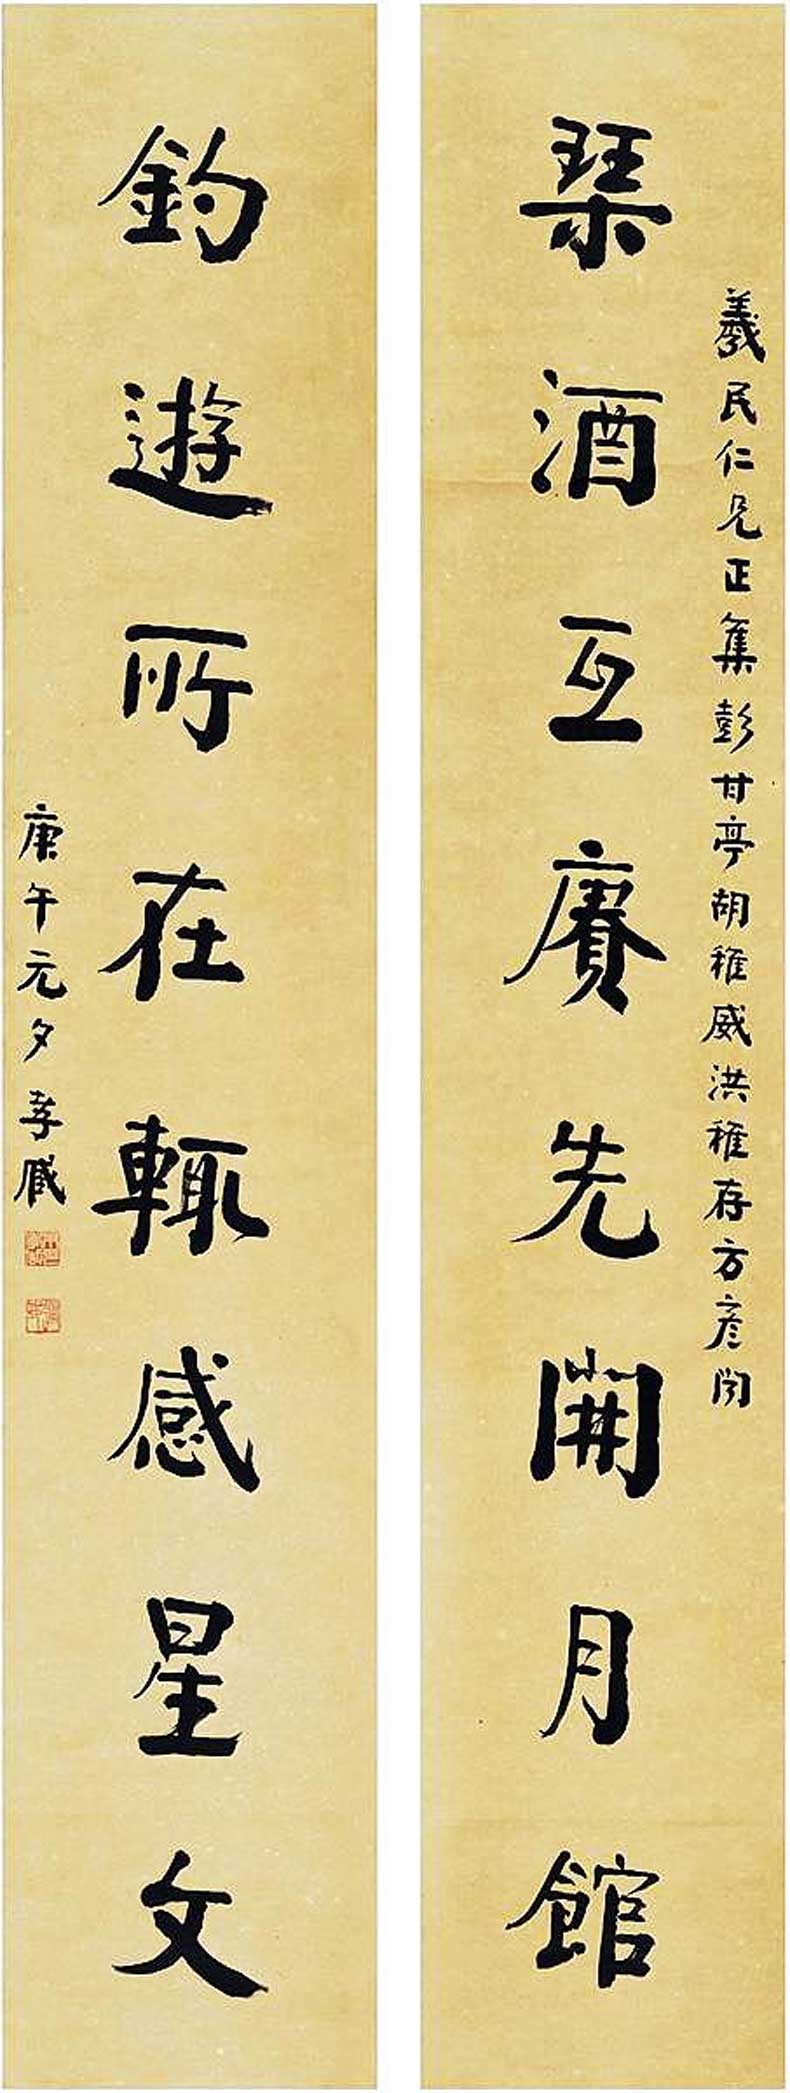 羲民仁兄正集彭甘亭胡稚威洪稚存方彦聞
琹酒互賡先開月館
釣遊所在輒感星文
庚午元夕孝臧